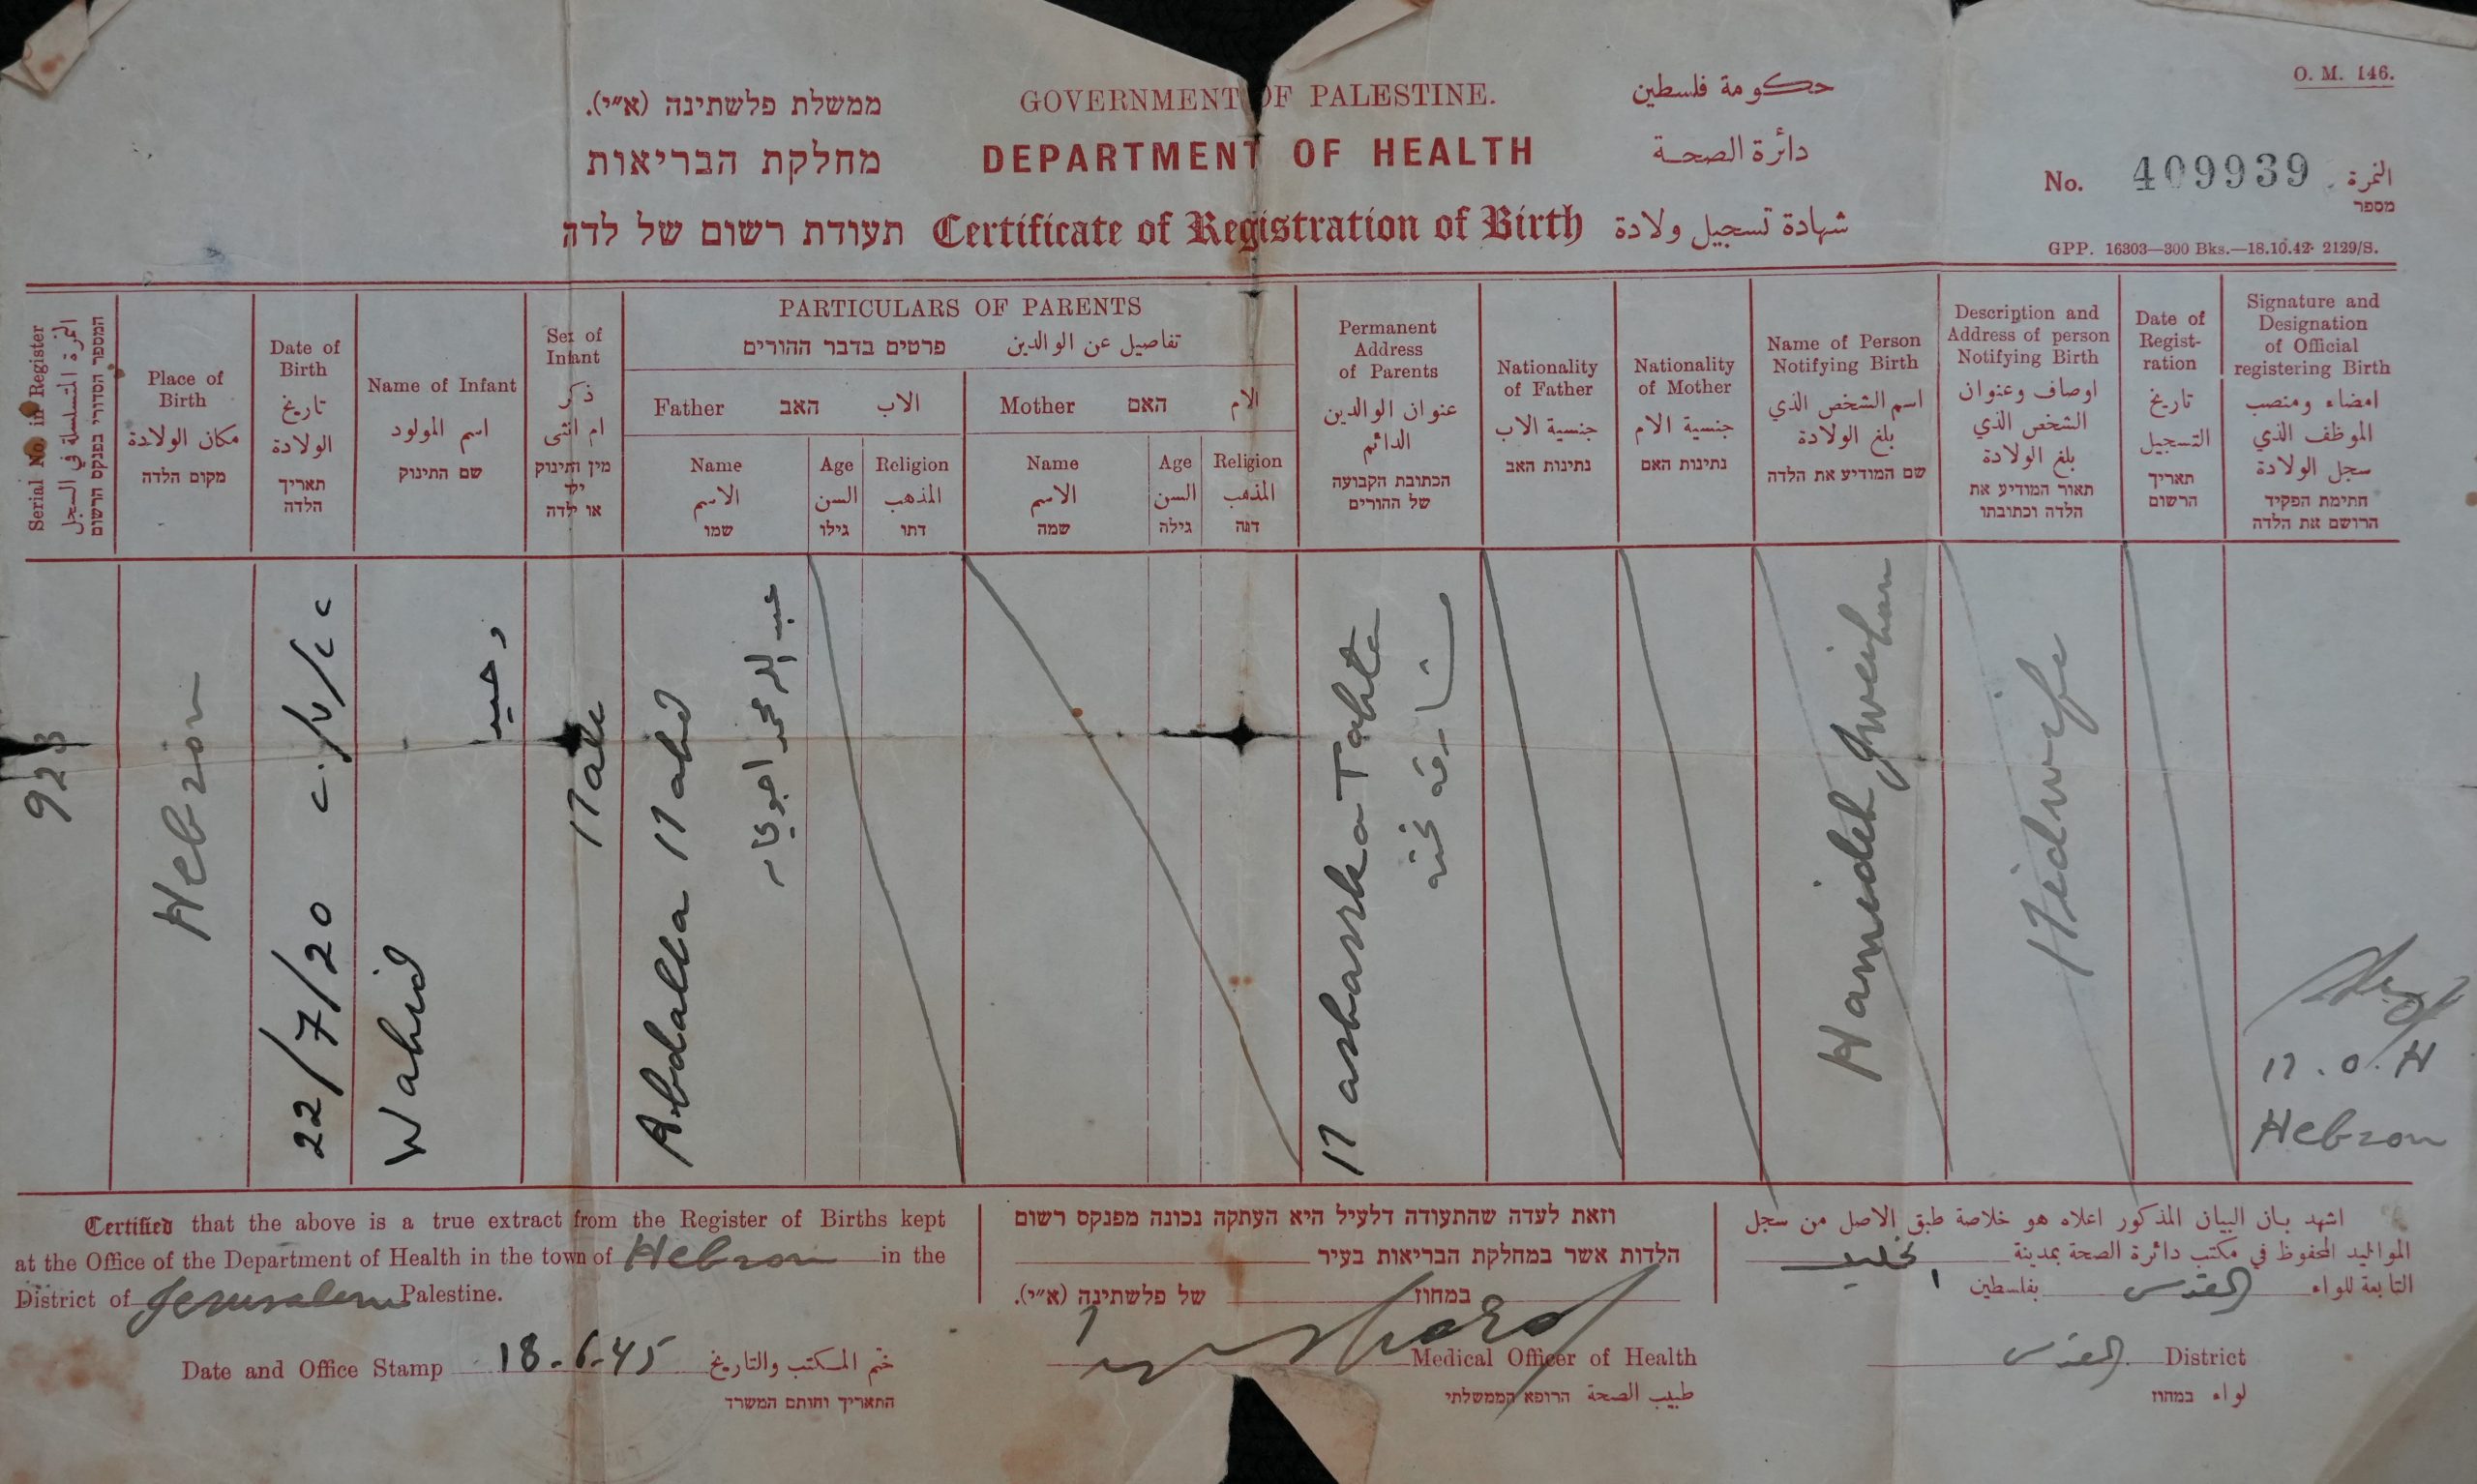 O. M. 146.
ממשלת פלשתינה (א״י). GOVERNMENT OF PALESTINE. حكومة فلسطين
מחלקת הבריאות DEPARTMENT OF HEALTH دائرة الصحة
No. 409939 النمرة
מספר
תעודת רשום של לדה Certificate of Registration of Birth شهادة تسجيل ولادة
GPP. 16303—300 Bks.—18.10.42. 2129/S.
Serial No. in Register
النمرة المتسلسلة في السجل
המספר הסדורי בפנקס הרשום
Place of
Birth
مكان الولادة
מקום הלדה
Date of
Birth
تاريخ
الولادة
תאריך
הלדה
Name of Infant
اسم المولود
שם התינוק
Sex of
Infant
ذكر
ام انثى
מין התינוק
ילד
או ילדה
PARTICULARS OF PARENTS
פרטים בדבר ההורים تفاصيل عن الوالدين
Father האב الاب
Mother האם الام
Name
الاسم
שמו
Age
السن
גילו
Religion
المذهب
דתו
Name
الاسم
שמה
Age
السن
גילה
Religion
المذهب
דתה
Permanent
Address
of Parents
عنوان الوالدين
الدائم
הכתובת הקבועה
של ההורים
Nationality
of Father
جنسية الاب
נתינות האב
Nationality
of Mother
جنسية الام
נתינות האם
Name of Person
Notifying Birth
اسم الشخص الذي
بلغ الولادة
שם המודיע את הלדה
Description and
Address of person
Notifying Birth
اوصاف وعنوان
الشخص الذي
بلغ الولادة
תאור המודיע את
הלדה וכתובתו
Date of
Regist-
ration
تاريخ
التسجيل
תאריך
הרשום
Signature and
Designation
of Official
registering Birth
امضاء ومنصب
الموظف الذي
سجل الولادة
חתימת הפקיד
הרושם את הלדה
923
Hebron
22/7/20
٢٢/٧/٢٠
Wahid
وحيد
Male
Abdalla Mahd
عبد الله محمد
Masharka Tahta
مشارقه تحته
Hamideh Gweihan
Midwife
M.O.H
Hebron
Certified that the above is a true extract from the Register of Births kept
at the Office of the Department of Health in the town of Hebron in the
District of Jerusalem Palestine.
Date and Office Stamp 18-6-45 ختم المكتب والتاريخ
התאריך וחותם המשרד
וזאת לעדה שהתעודה דלעיל היא העתקה נכונה מפנקס רשום
הלדות אשר במחלקת הבריאות בעיר
במחוז של פלשתינה (א״י).
Medical Officer of Health
طبيب الصحة הרופא הממשלתי
اشهد بان البيان المذكور اعلاه هو خلاصة طبق الاصل من سجل
المواليد المحفوظ في مكتب دائرة الصحة بمدينة الخليل
التابعة للواء القدس بفلسطين
القدس District
لواء במחוז